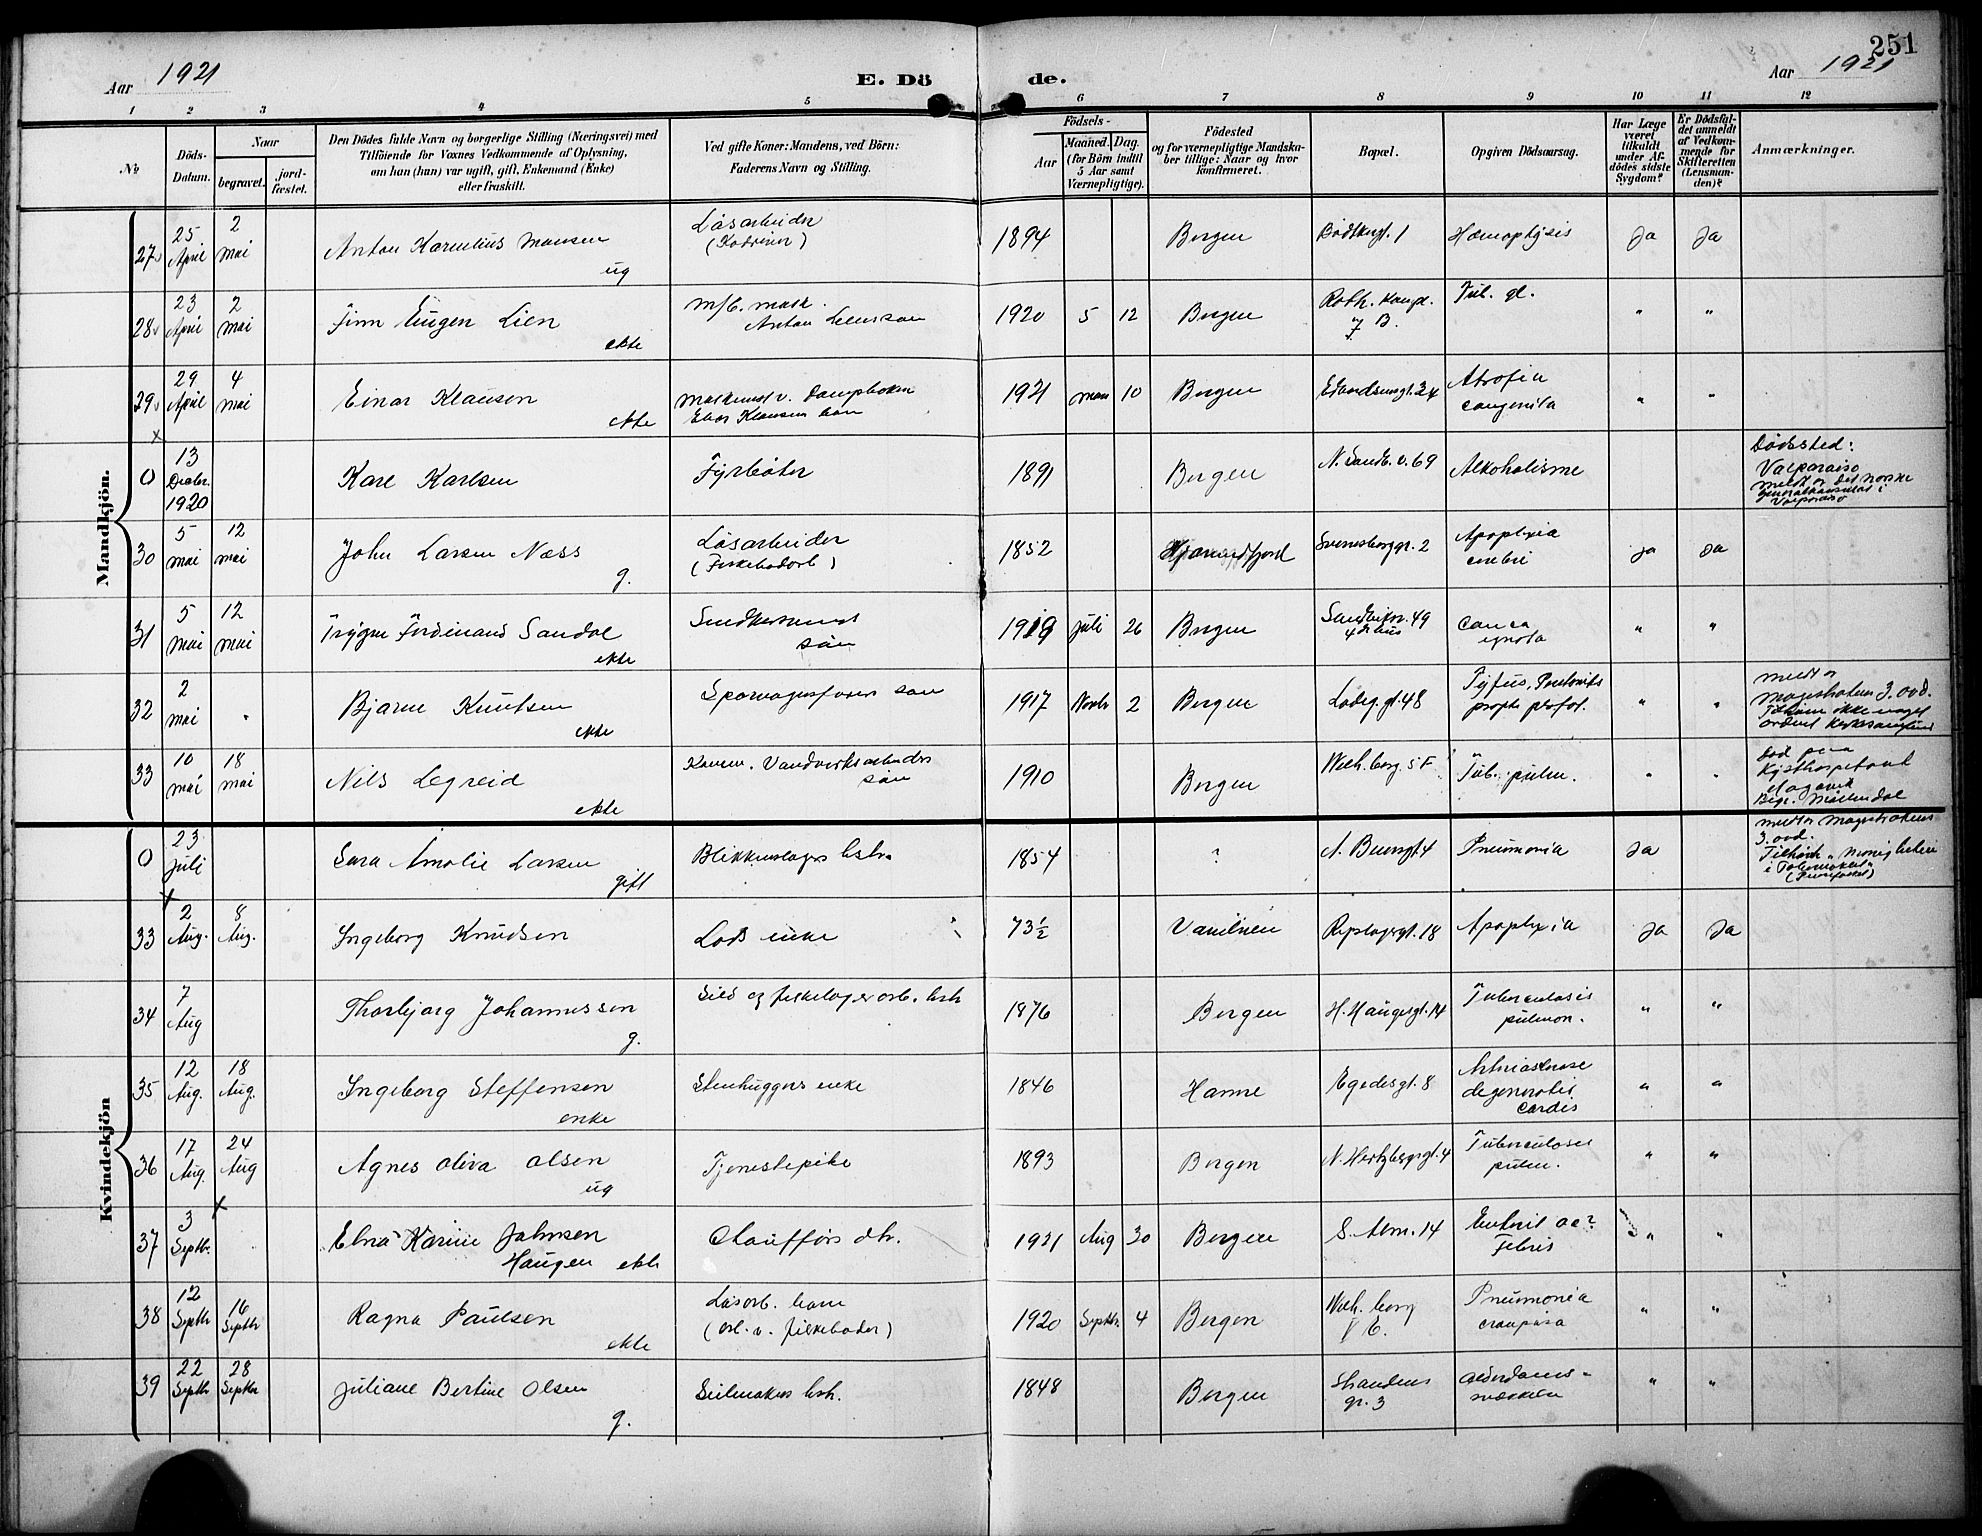 251
Aar 1921 E. Dö de. Aar 1921
1 2 3 4 5 6 7 8 9 10 11 12
No
Döds-Datum.
Naar
begravet.
jord-fæstet.
Den Dödes fulde Navn og borgerlige Stilling (Næringsvei) med
Tilföiende for Voxnes Vedkommende af Oplysning,
om han (hun) var ugift, gift, Enkemand (Enke)
eller fraskilt.
Ved gifte Koner: Mandens, ved Börn:
Faderens Navn og Stilling.
Födsels-
Aar
Maaned. Dag.
(for Börn indtil
5 Aar samt
Værnepligtige).
Födested
og for værnepligtige Mandska-
ber tillige: Naar og hvor
konfirmeret.
Bopæl.
Opgiven Dödsaarsag.
Har Læge
været
tilkaldt
under Af-
dödes sidste
Sygdom?
Er Dödsfal-
det anmeldt
af Vedkom-
mende for
Skifteretten
(Lensman-
den)?
Anmærkninger.
Mandkjön.
27 25 April 2 mai Anton Kornelius Monsen ug Løsarbeider 1894 Bergen 1 Hæmoptysis Ja Ja
28 23 April 2 mai Finn Eugen Lien ekte Anton 1920 5 12 Bergen 7 B. Tub. gl. " "
29 29 April 4 mai Einar Klausen ekte Klausen 1921 mars 10 Bergen 24 Atrofia congenita " "
0 13 Decbr. 1920 Karl Karlsen Fyrbøter 1891 Bergen N. Sandv. v. 69 Alkoholisme Dødssted: Valparaiso meldt av det norske generalkonsulat i Valparaiso
30 5 mai 12 mai John Larsen Næss g. Løsarbeider 1852 2 Apoplexia cerebri ja Ja
31 5 mai 12 mai Trygve Ferdinand Sandal ekte søn 1919 Juli 26 Bergen 49 Causa ignota " "
32 2 mai " Bjarne Knutsen ekte Sporvognsførers søn 1917 Novbr 2 Bergen Ladeg. gt. 48 Tyfus, " " meldt av magistratens 3. avd. ikke noget
33 10 mai 18 mai Nils Legreid ekte Vandverksarbeiders søn 1910 Bergen 5 F Tub. pulm. " " Død paa Kysthospitalet Hagavik Møllendal
Kvindekjön
0 23 Juli Sara Amalie Larsen gift Blikkenslagers hstr. 1854 ? 4 Pneumonia Ja meldt av Magistratens 3. avd.
33 2 Aug. 8 Aug. Ingeborg Knudsen Lods enke 73½ Repslagergt. 18 Apoplexia Ja Ja
34 7 Aug Thorbjørg Johannessen g. Sild og fiskelager arb. hstr 1876 Bergen H. Haugesgt. 14 Tuberculosis pulmon. " "
35 12 Aug. 18 Aug. Ingeborg Steffensen enke Stenhuggers enke 1846 Hamre Egedesgt. 8 degeneratis cordis " "
36 17 Aug. 24 Aug Agnes Oliva Olsen ug Tjenestepike 1893 Bergen N. Hertzbergsgt. 4 Tuberculosis pulm. " "
37 3 Septbr. Elna Karine Johnsen Haugen ekte Chaufførs dtr. 1921 Aug 30 Bergen S. Alm. 14 Febris " "
38 12 Septbr 16 Septbr Ragna Paulsen ekte Løsarb. barn (arb. v. fiskeboder) 1920 Septbr. 4 Bergen Wilh. borg V E. Pneumonia crouposa " "
39 22 Septbr 28 Septbr Juliane Bertine Olsen g. Seilmakers hstr. 1848 Bergen Strandens gr. 3 Alderdoms-svækkelse " "